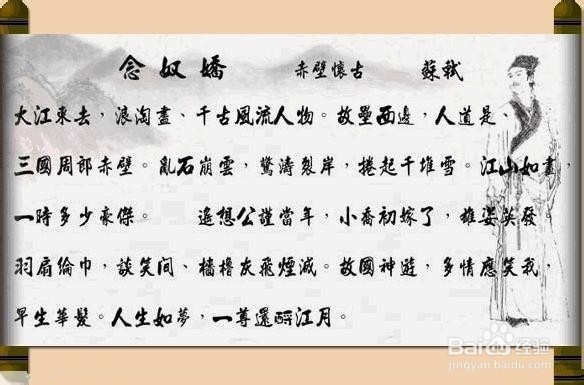 念奴嬌 赤壁懷古 蘇軾
大江東去，浪淘盡、千古風流人物。故壘西邊，人道是、
三國周郎赤壁。亂石崩雲，驚濤裂岸，捲起千堆雪。江山如畫，
一時多少豪傑。 遙想公謹當年，小喬初嫁了，雄姿英發。
羽扇綸巾，談笑間、檣櫓灰飛煙滅。故國神遊，多情應笑我，
早生華髮。人生如夢，一尊還酹江月。
Baidu经验
jingyan.baidu.com